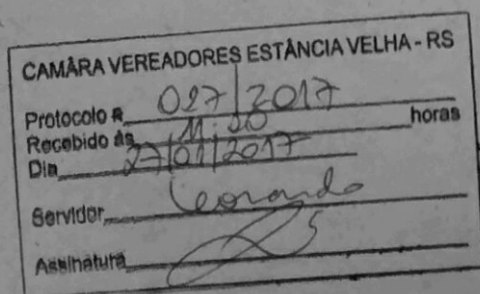 CAMÂRA VEREADORES ESTÂNCIA VELHA - RS
Protocolo nº 027/2017
Recebido às 11:20 horas
Dia 27/01/2017
Servidor Leonardo
Assinatura